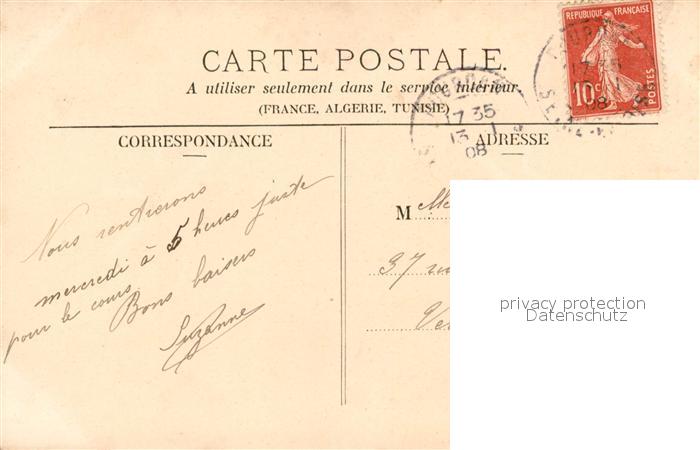 CARTE POSTALE.
A utiliser seulement dans le service intérieur.
(FRANCE, ALGERIE, TUNISIE)
REPUBLIQUE FRANÇAISE
10c
POSTES
17 35
13 1
08
CORRESPONDANCE
ADRESSE
Nous rentrerons
mercredi à 5 heures juste
pour le cours.
Bons baisers
Suzanne
M
37
privacy protection
Datenschutz